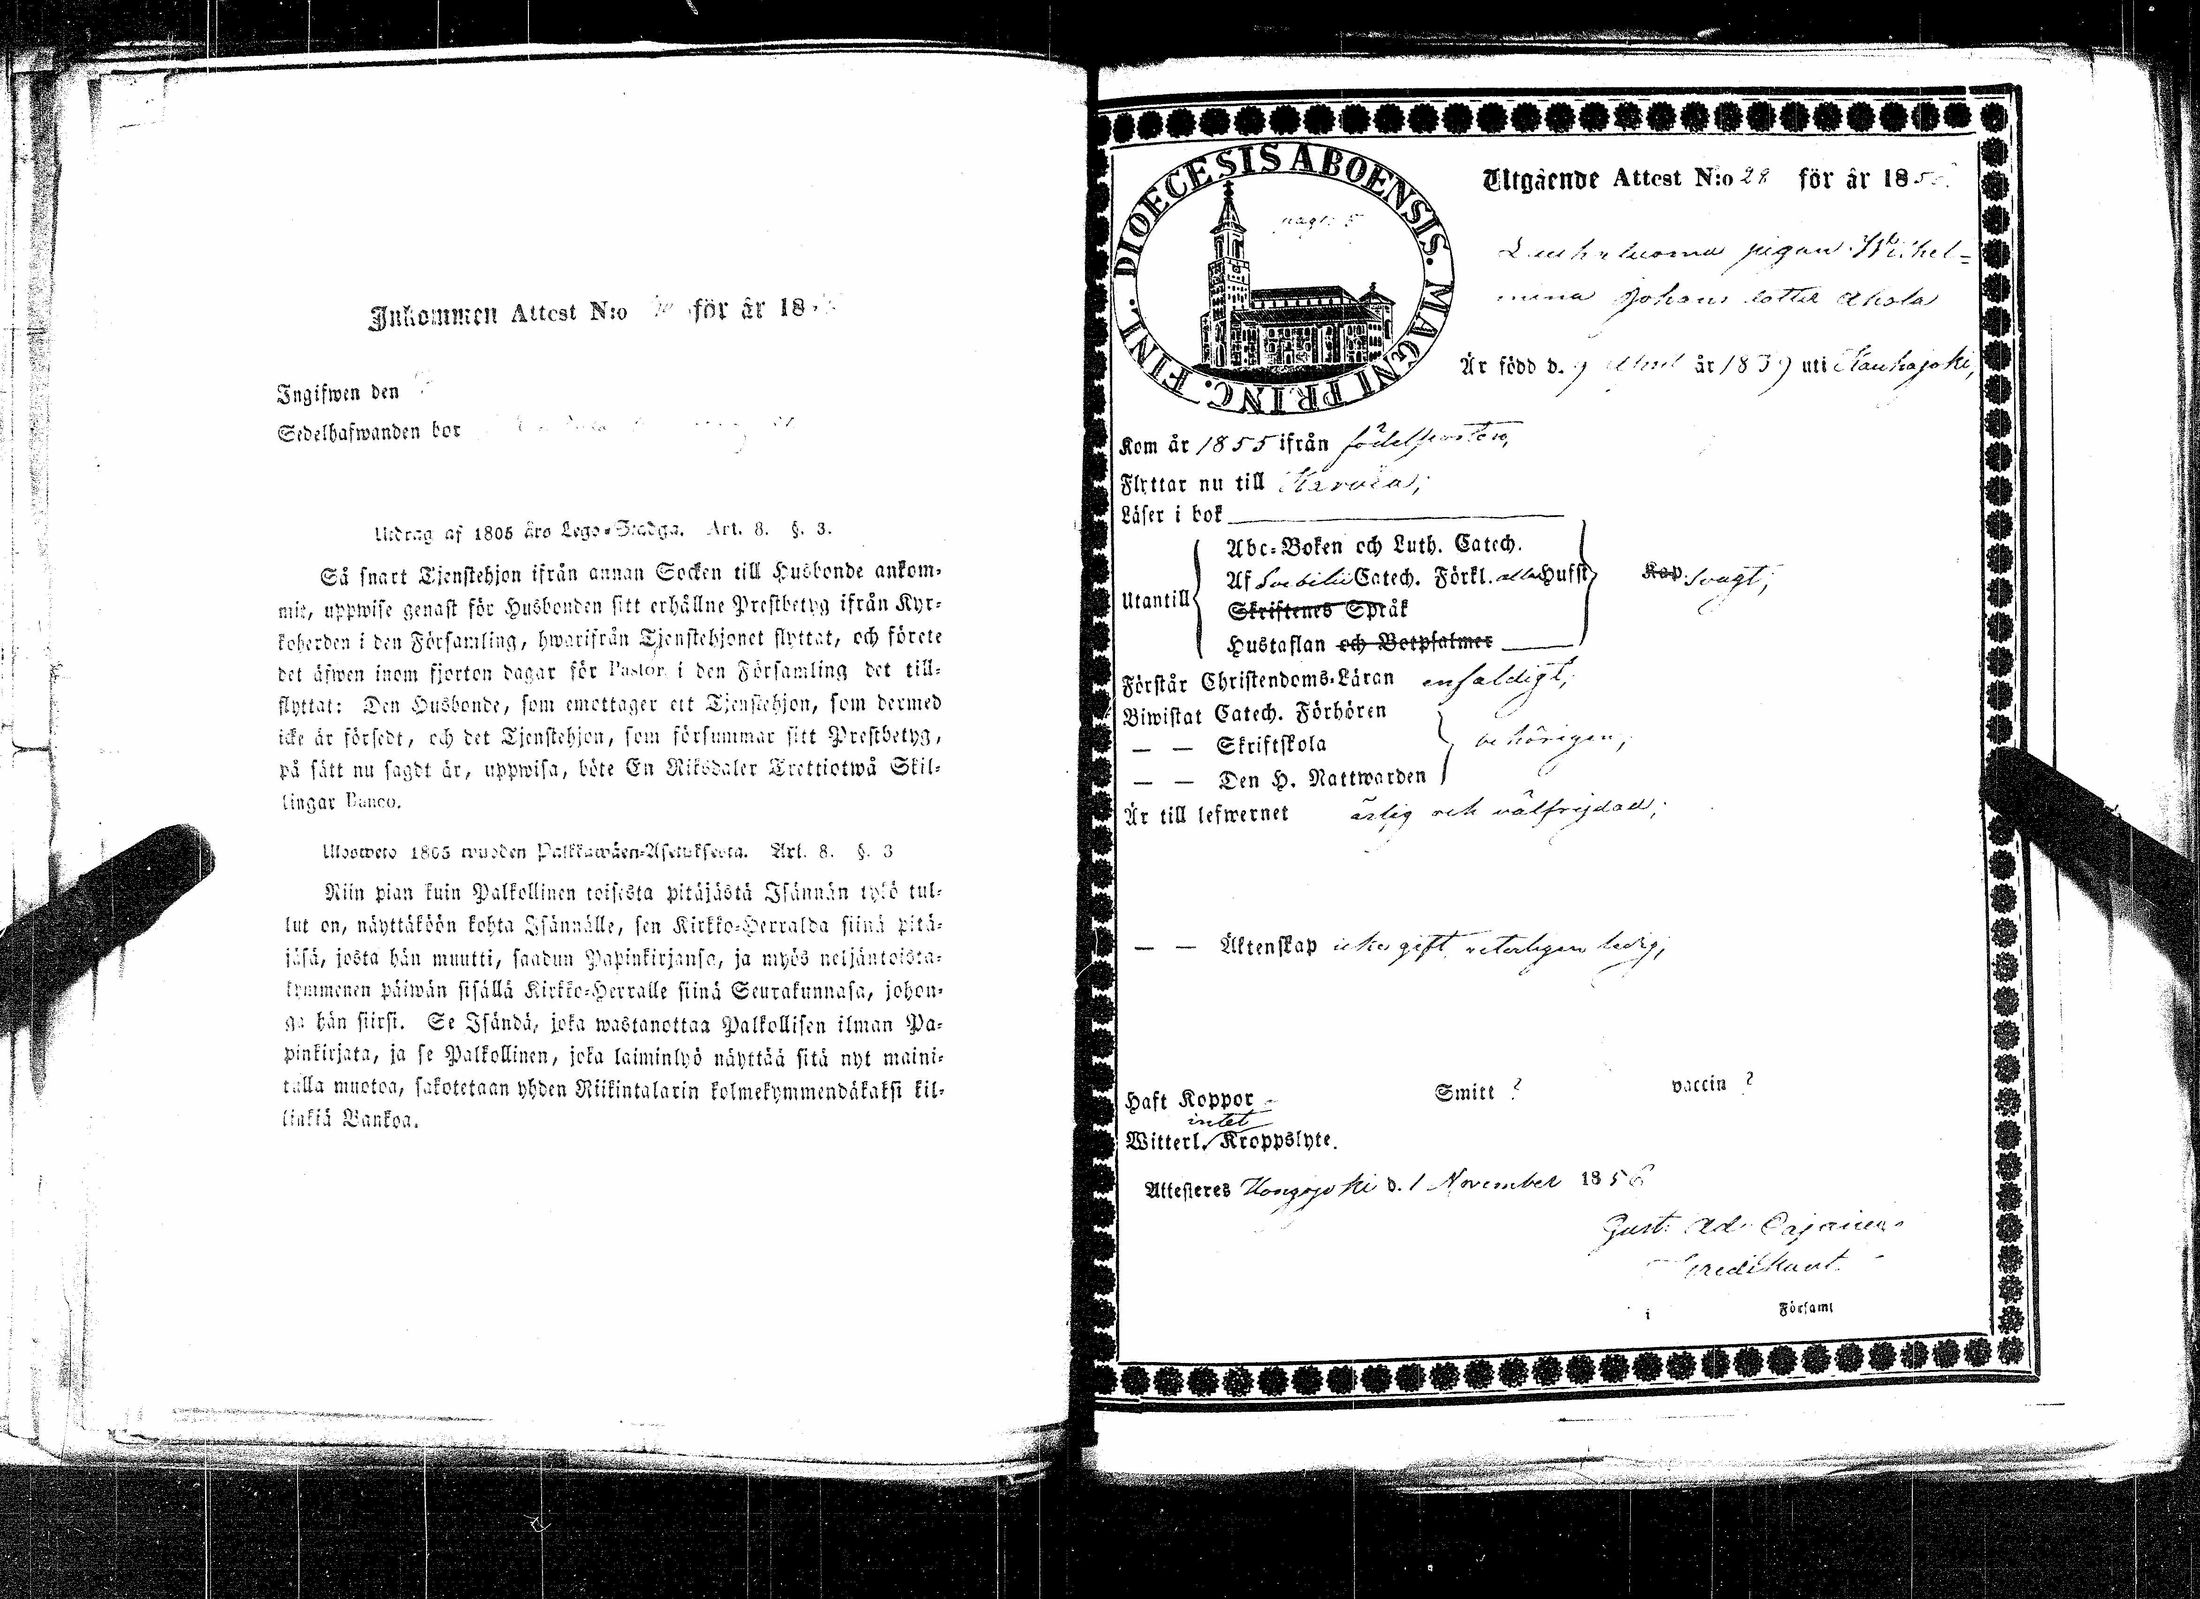 Inkommen Attest N:o för år 18
Ingifwen den
Sedelhafwanden bor
Utdrag af 1805 års Lego-Stadga. Art. 8. §. 3.
Så snart Tjenstehjon ifrån annan Socken till Husbonde ankom-
mit, uppwise genast för Husbonden sitt erhållne Prestbetyg ifrån Kyr-
koherden i den Församling, hwarifrån Tjenstehjonet flyttat, och förete
det äfwen inom fjorton dagar för Pastor i den Församling det till-
flyttat: Den Husbonde, som emottager ett Tjenstehjon, som dermed
icke är försedt, och det Tjenstehjon, som försummar sitt Prestbetyg,
på sätt nu sagdt är, uppwisa, böte En Riksdaler Trettiotwå Skil-
lingar Banco.
Ulosweto 1805 wuoden Palkkawäen-Asetuksesta. Art. 8. §. 3
Niin pian kuin Palkollinen toisesta pitäjästä Isännän tykö tul-
lut on, näyttäköön kohta Isännälle, sen Kirkko-Herralda siinä pitä-
jäsä, josta hän muutti, saadun Papinkirjansa, ja myös neljäntoista-
kymmenen päiwän sisällä Kirkko-Herralle siinä Seurakunnasa, johon-
ga hän siirsi. Se Isändä, joka wastanottaa Palkollisen ilman Pa-
pinkirjata, ja se Palkollinen, joka laiminlyö näyttää sitä nyt maini-
tulla muotoa, sakotetaan yhden Riikintalarin kolmekymmendäkaksi kil-
linkiä Bankoa.
DIOECESIS ABOENSIS. MAGNI PRINC. FINL.
Utgående Attest N:o 28 för år 185
pigan Wilhel-
mina Johans dotter Ahola
Är född d. 9 April år 1839 uti Kauhajoki,
Kom år 1855 ifrån födelseorten,
Flyttar nu till
Läser i bok
Utantill
Abc-Boken och Luth. Catech.
Af Svebilii Catech. Förkl. Hufst
Skriftenes Språk
Hustaflan och Botpsalmer
Kap svagt;
Förstår Christendoms-Läran enfaldigt;
Biwistat Catech. Förhören
— — Skriftskola
— — Den H. Nattwarden
behörigen;
Är till lefwernet ärlig och välfrejdad;
— — Äktenskap icke gift, veterligen ledig;
Haft Koppor - Smitt ? vaccin ?
intet
Witterl. Kroppslyte.
Attesteres d. 1 November 1856
Gust. Ad. Cajanus
Predikant
i Församl